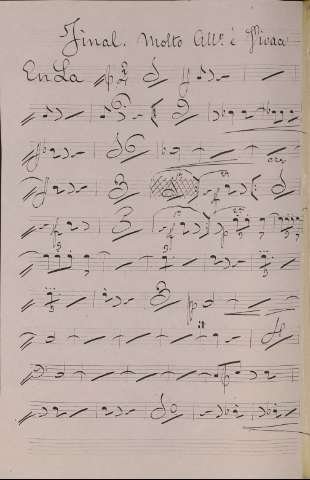 Final. Molto All.º è Vivace
En La